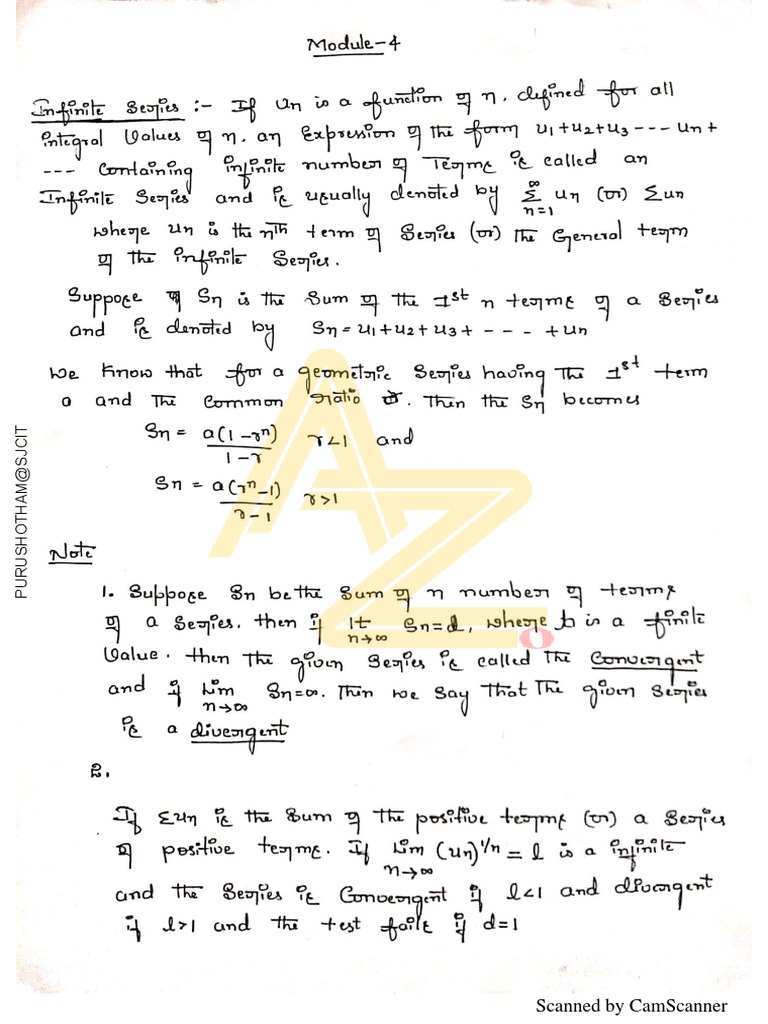 Module-4
Infinite Series :- If un is a function of n, defined for all
integral Values of n. an Expression of the form u1+u2+u3+--- un+
--- Containing infinite number of Terms is called an
Infinite Series and is usually denoted by ∞Σn=1 un (or) Σun
where un is the nth term of Series (or) The General term
of the infinite Series.
Suppose Sn is the Sum of the 1st n terms of a Series
and is denoted by Sn = u1+u2+u3+ - - - - + un
We Know that for a geometric Series having The 1st term
a and The Common ratio r. Then the Sn becomes
Sn = a(1-rⁿ)/1-r r<1 and
Sn = a(rⁿ-1)/r-1 r>1
Note
1. Suppose Sn be the Sum of n number of terms
of a Series. then if lt n→∞ Sn=l, where l is a finite
Value. then The given Series is called The Convergent
and if Lim n→∞ Sn=∞. Then we say That The given Series
is a divergent
2.
If Σun is the Sum of The positive terms (or) a Series
of positive terms. If Lim n→∞ (un)^1/n = l is a infinite
and the Series is Convergent if l<1 and divergent
if l>1 and the test fails if d=1
PURUSHOTHAM@SJCIT
Scanned by CamScanner